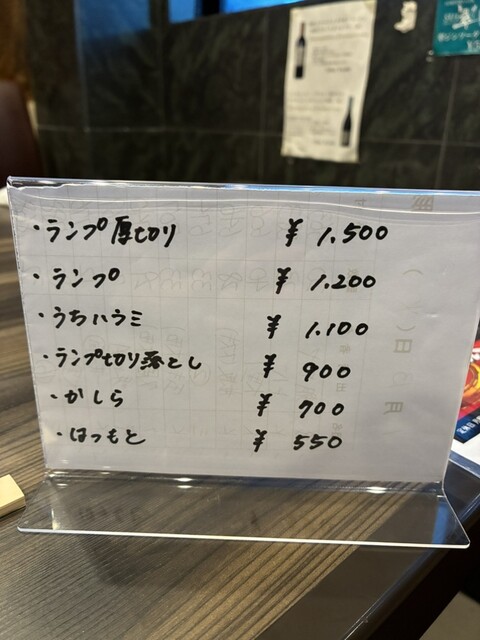 ・ランプ厚切り ¥1.500
・ランプ ¥1.200
・うちハラミ ¥1.100
・ランプ切り落とし ¥900
・かしら ¥700
・はつもと ¥550